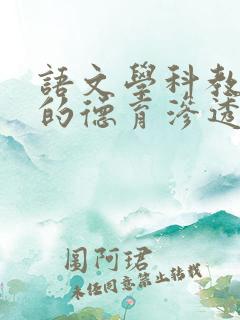 語文學科教
的德育滲透
圖阿珺
未經同意禁止轉載